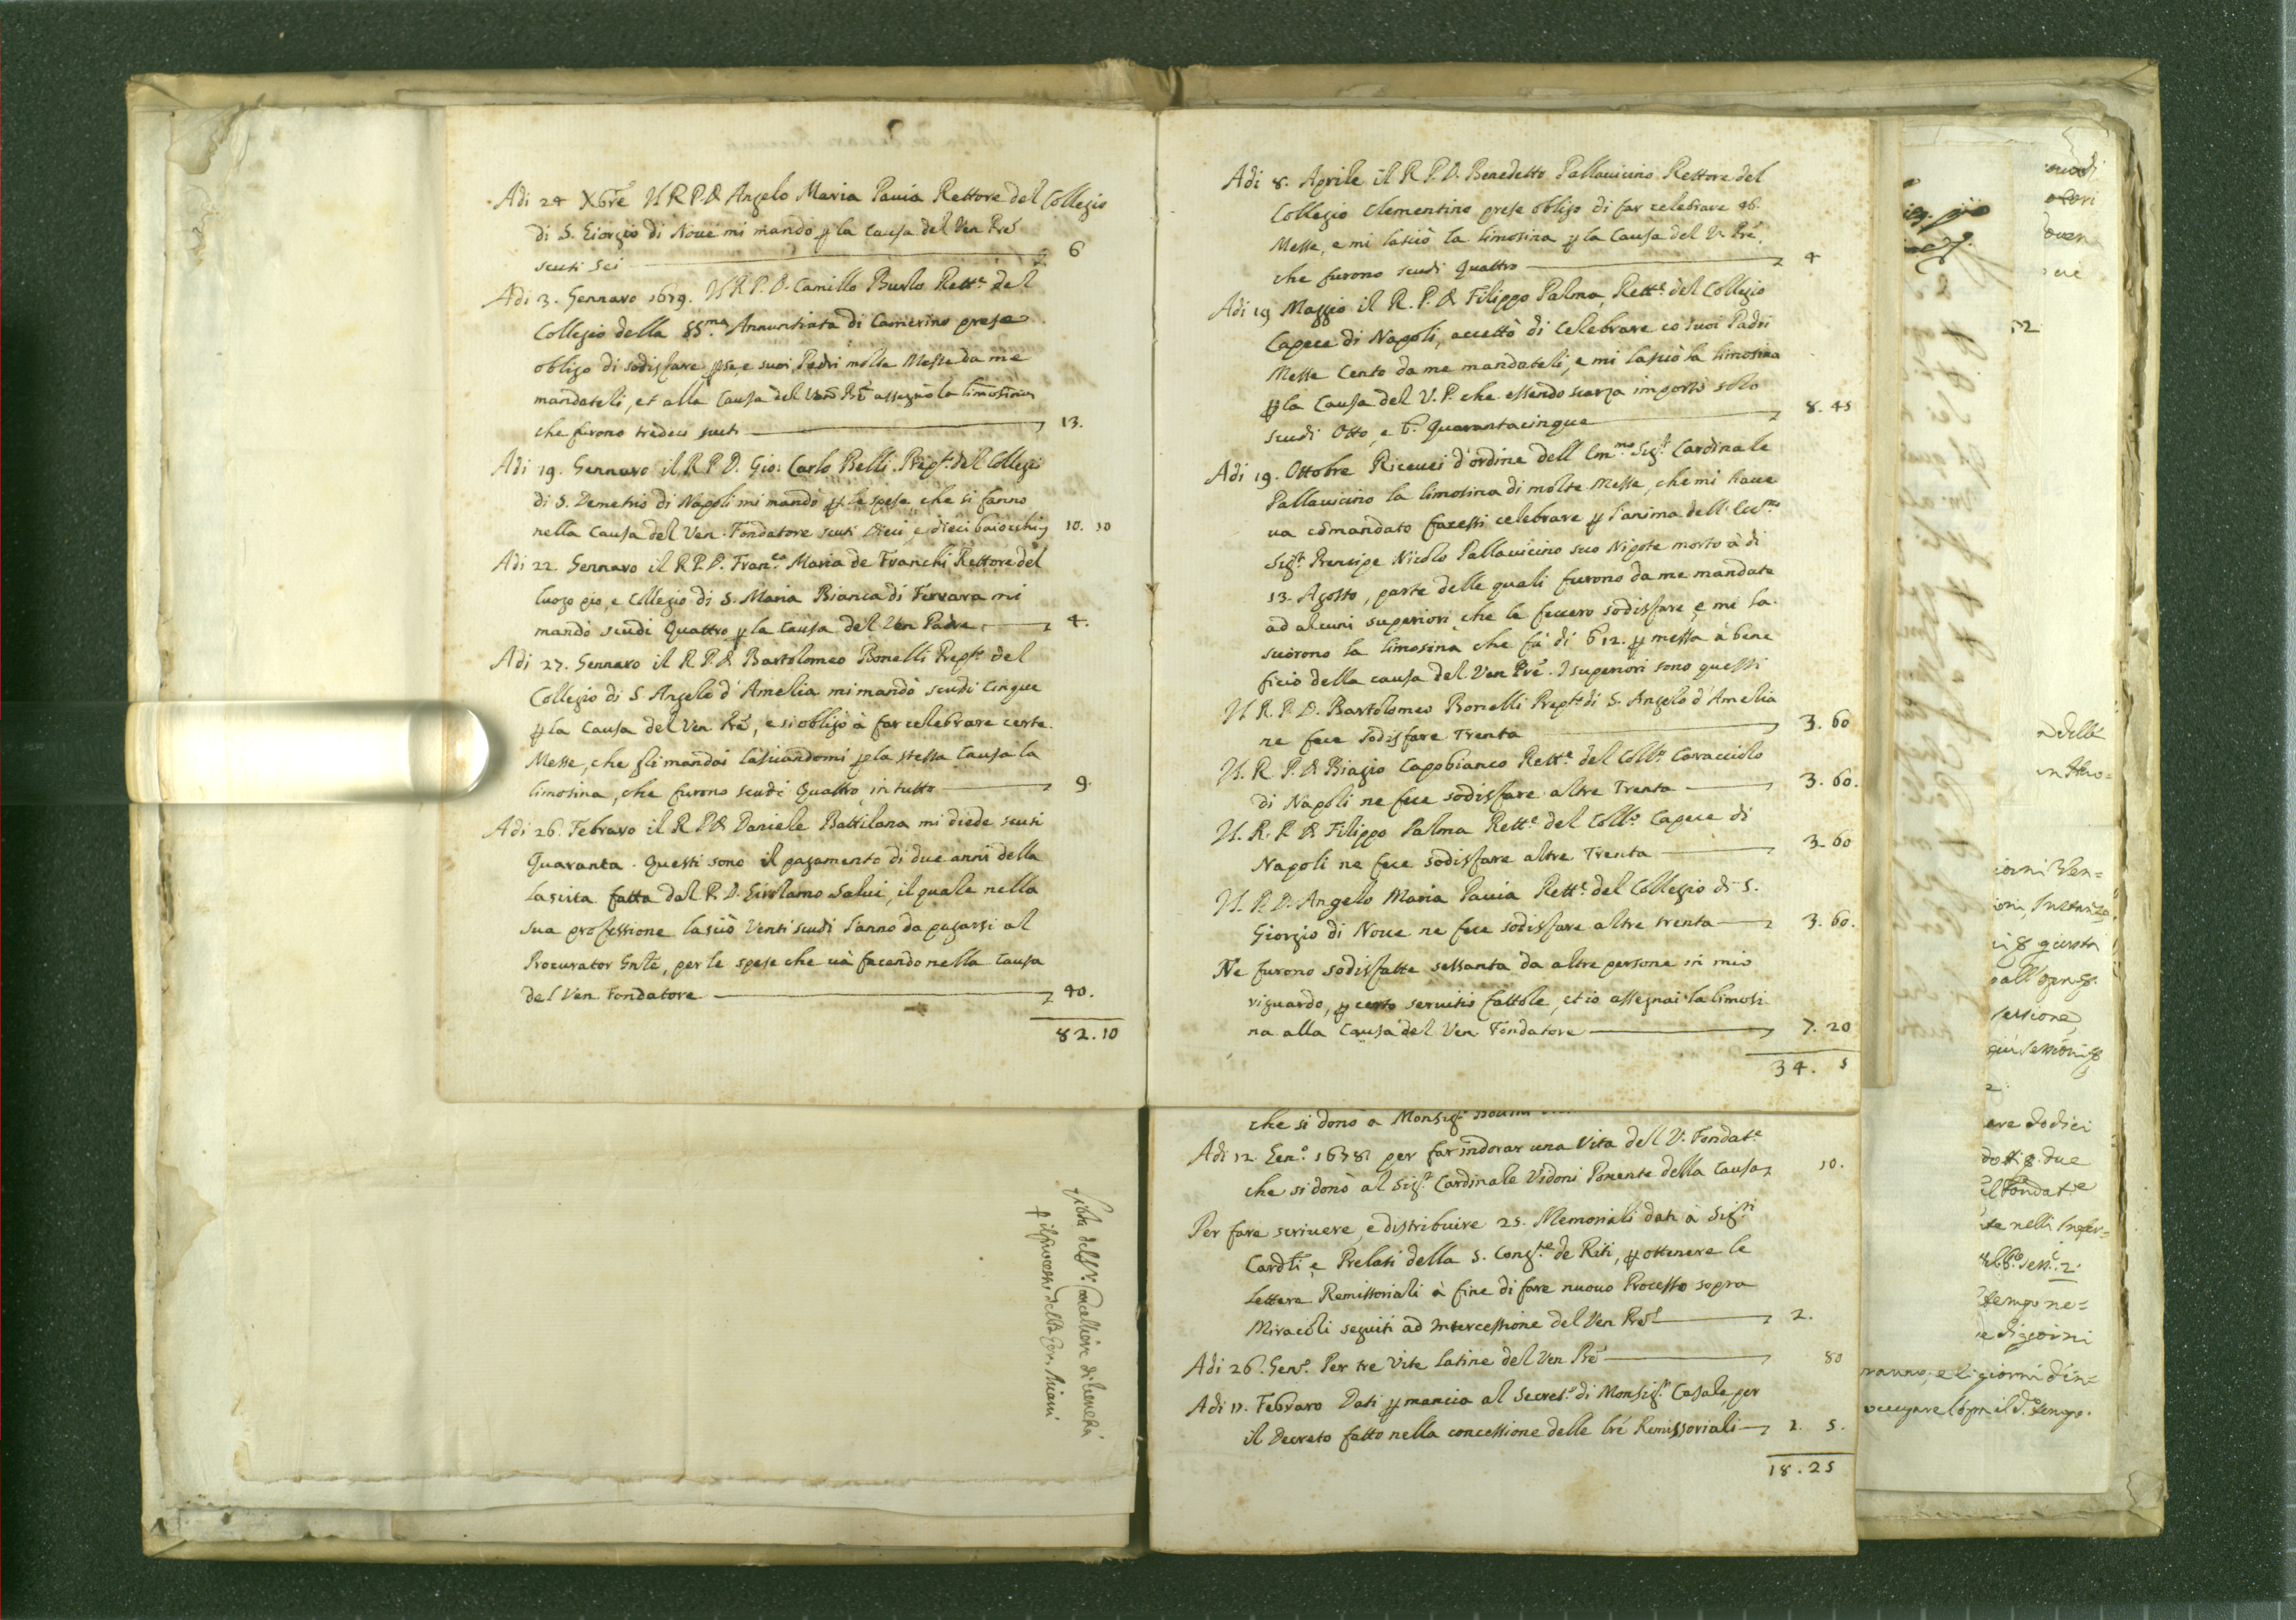 Adi 24 Xbre Il R.P.D. Angelo Maria Pauia Rettore del Collegio
di S. Giorgio di Noue mi mandò p la Causa del Ven Pre
scuti Sei 6
Adi 3. Gennaro 1679. Il R.P.D. Camillo Rett.e del
Collegio della SS.ma Annuntiata di Camerino prese
obligo di sodisfare p se, e suoi Padri molte Messe da me
mandateli, et alla Causa del Ven Pre assegnò la limosina
che furono tredeci scuti 13.
Adi 19. Gennaro il R.P.D. Gio: Carlo Belli Prep.to del Collegio
di S. Demetrio di Napoli mi mandò p le spese, che si fanno
nella Causa del Ven. Fondatore scuti Dieci, e dieci baiocchi 10. 10
Adi 22 Gennaro il R.P.D. Fran.co Maria de Franchi Rettore del
luogo pio, e Collegio di S. Maria Bianca di Ferrara mi
mandò scudi Quattro p la Causa del Ven Padre 4.
Adi 27. Gennaro il R.P.D. Bartolomeo Bonelli Prep.to del
Collegio di S. Angelo d'Amelia mi mandò scudi Cinque
p la Causa del Ven Pre, e si obligò à far celebrare certe
Messe, che gli mandai lasciandomi p la stessa Causa la
limosina, che furono scudi Quattro, in tutto 9.
Adi 26. Febraro il R.P.D. Daniele Battilana mi diede scuti
Quaranta. Questi sono il pagamento di due anni della
Lascita fatta dal P.D. Girolamo Salui, il quale nella
sua professione lasciò Venti scudi l'anno da pagarsi al
Procurator Gnle, per le spese che uà facendo nella Causa
del Ven. Fondatore 40.
82.10
Adi 8. Aprile il R.P.D. Benedetto Pallauicino Rettore del
Collegio Clementino prese obligo di far celebrare 46.
Messe, e mi lasciò la limosina p la Causa del V. Pre,
che furono scudi Quattro 4
Adi 19 Maggio il R.P.D. Filippo Palma, Rett.e del Collegio
Capece di Napoli, accettò di Celebrare co suoi Padri
Messe Cento da me mandateli, e mi lasciò la limosina
p la Causa del V.P. che essendo scarza importò solo
scudi Otto, e b. Quarantacinque 8. 45
Adi 19. Ottobre Riceuei d'ordine dell Em.mo Sig.r Cardinale
Pallauicino la limosina di molte Messe, che mi haue
ua comandato facessi celebrare p l'anima dell Ecc.mo
Sig.r Prencipe Nicolo Pallauicino suo Nipote morto à di
13. Agosto, parte delle quali furono da me mandate
ad alcuni superiori, che le fecero sodisfare, e mi la-
sciorono la limosina, che fù di b 12. p messa à bene
ficio della causa del Ven Pre. I superiori sono questi
Il R.P.D. Bartolomeo Bonelli Prep.to di S. Angelo d'Amelia
ne fece sodisfare Trenta 3. 60
Il R.P.D. Biagio Capobianco Rett.e del Coll.o Caracciolo
di Napoli ne fece sodisfare altre Trenta 3. 60.
Il R.P.D. Filippo Palma Rett.e del Coll.o Capece di
Napoli ne fece sodisfare altre Trenta 3. 60
Il P.D. Angelo Maria Pauia Rett.e del Collegio di S.
Giorgio di Noue ne fece sodisfare altre trenta 3. 60.
Ne furono sodisfatte sessanta da altre persone in mio
riguardo, p certo seruitio fattole, et io assegnai la limosi-
na alla Causa del Ven Fondatore 7. 20
34. 5
che si donò a Monsig.r
Adi 12. Gen.o 1678 per far indorar una Vita del V. Fondat.e
che si donò al Sig.r Cardinale Vidoni Ponente della Causa 10.
Per fare scriuere, e distribuire 25. Memoriali dati à Sig.ri
Card.li e Prelati della S. Cong.ne de Riti, p ottenere le
Lettere Remissoriali à fine di fare nuouo Processo sopra
Miracoli seguiti ad Intercessione del Ven Pre 2.
Adi 26. Gen.o Per tre Vite latine del Ven Pre 80
Adi 17. Febraro Dati p mancia al Secret.o di Monsig.r Casale, per
il Decreto fatto nella concessione delle lre Remissoriali 2. 5.
18.25